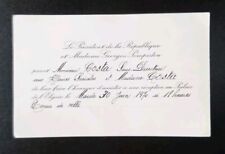 Le Président de la République
et Madame Georges Pompidou
prient Monsieur Costa Sous-Directeur
aux Affaires Sociales et Madame Costa
de leur faire l'honneur d'assister à une réception au Palais
de l'Elysée le Mardi 30 Juin 1970 à 18 heures
Tenue de ville